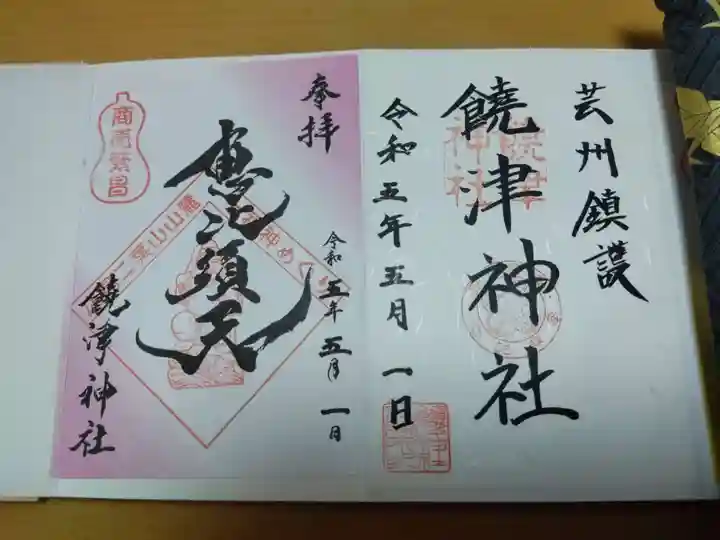 芸州鎮護
饒津神社
令和五年五月一日
奉拝
恵比須天
令和五年五月一日
商売繁昌
饒津神社